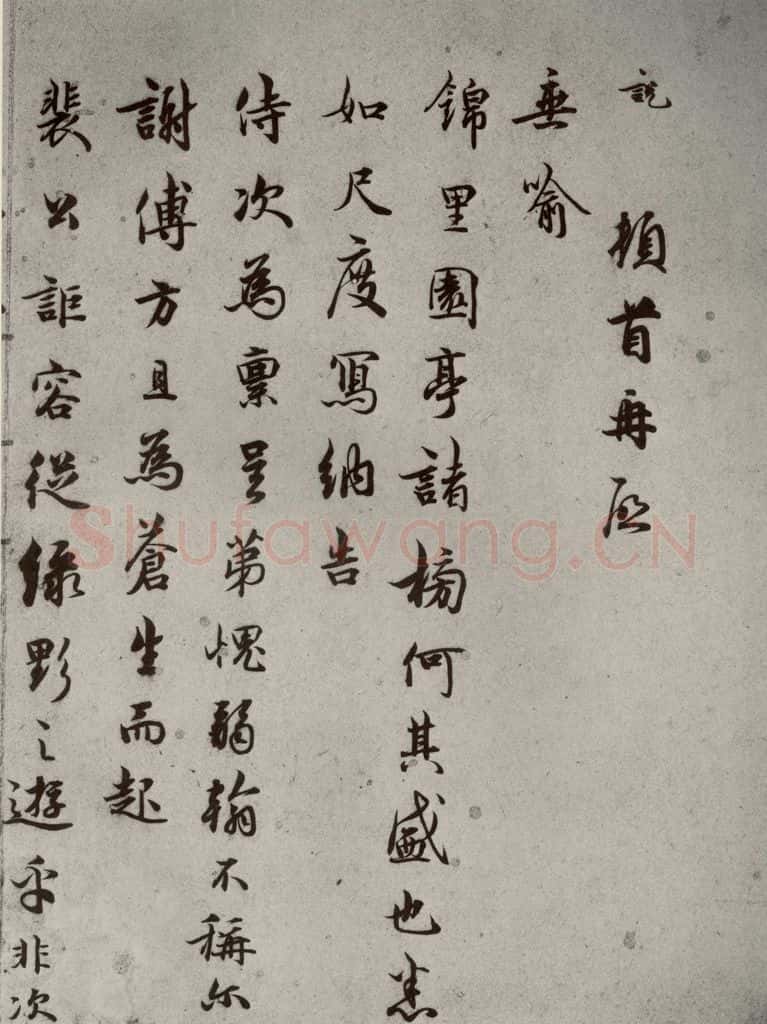 説 頓首再啓
垂喻
錦里園亭諸榜何其盛也悉
如尺度寫納告
侍次為稟呈第愧弱翰不稱尓
謝傅方且為蒼生而起
裴公詎容從綠野之遊乎非次
Shufawang.CN